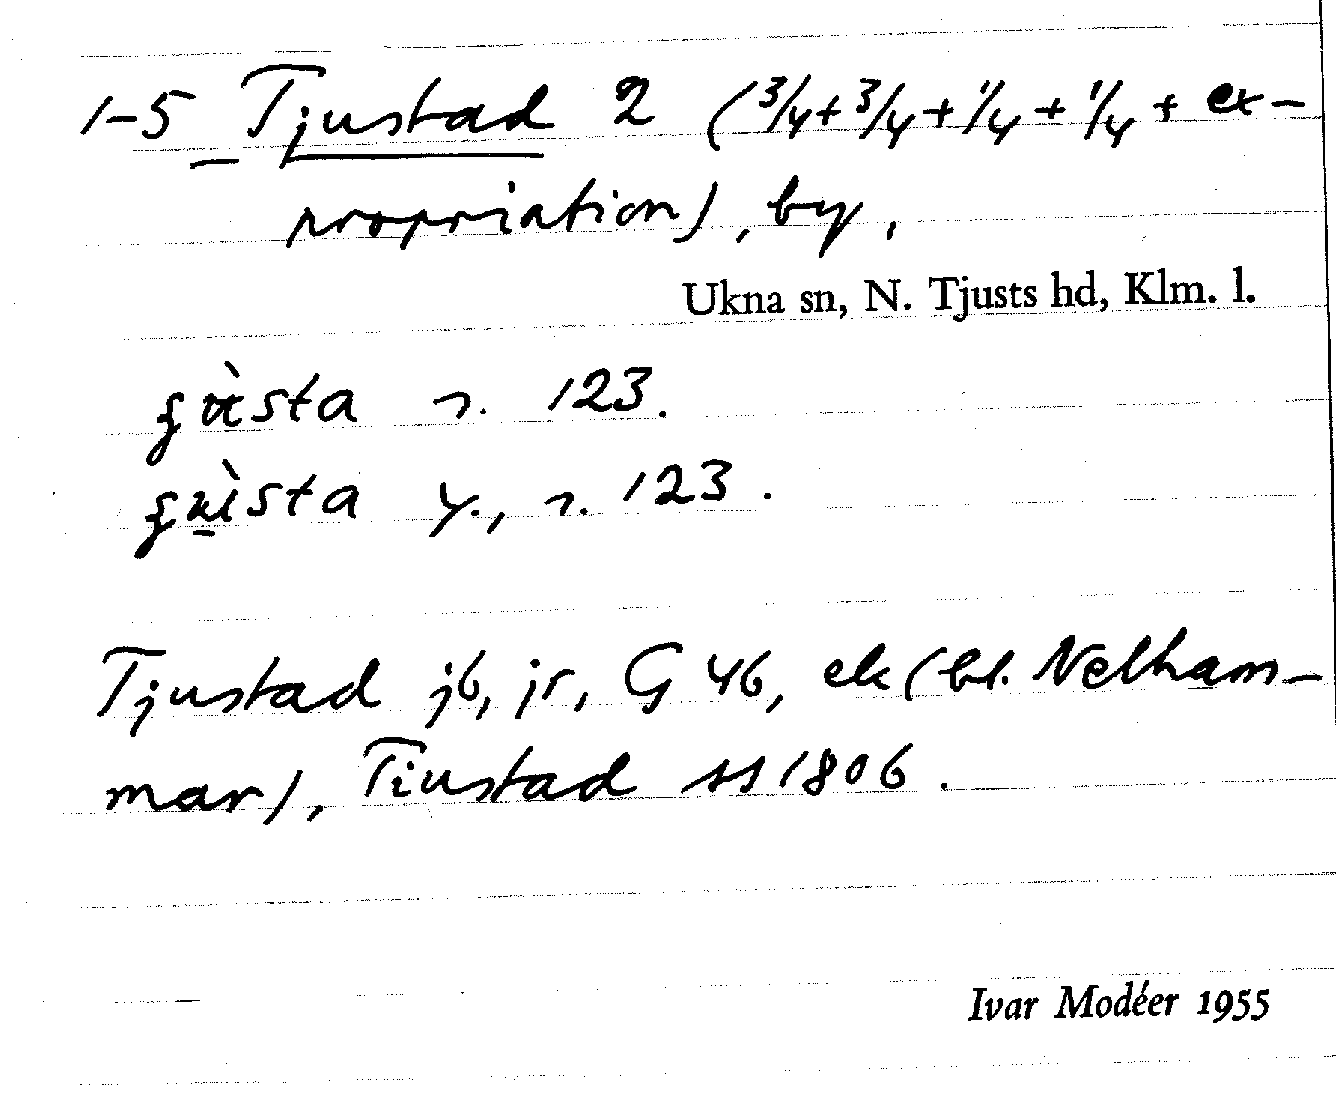 1-5 Tjustad 2 (3/4+3/4+1/4+1/4+ex-
propriation), by,
Ukna sn, N. Tjusts hd, Klm. l.
s. 123.
y., s. 123.
Tjustad jb, jr, G 46, ek (bl. Nelham-
mar), Tiustad ss 1806.
Ivar Modéer 1955